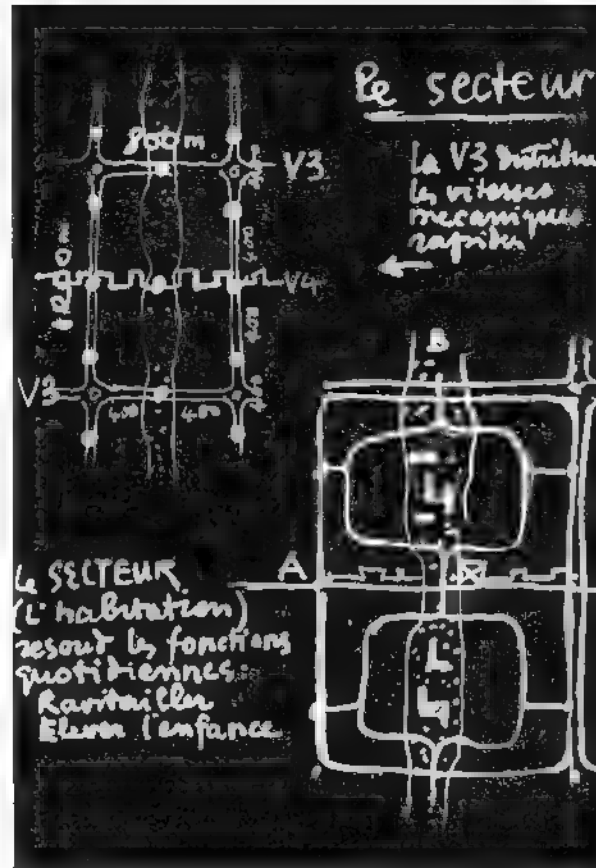 le secteur
800m
V3
la V3 distribue
les vitesses
mecaniques
rapides
1200m
400
V4
400
V3
400 400
B
A
le SECTEUR
(l'habitation)
resout les fonctions
quotidiennes:
Ravitailler
Elever l'enfance